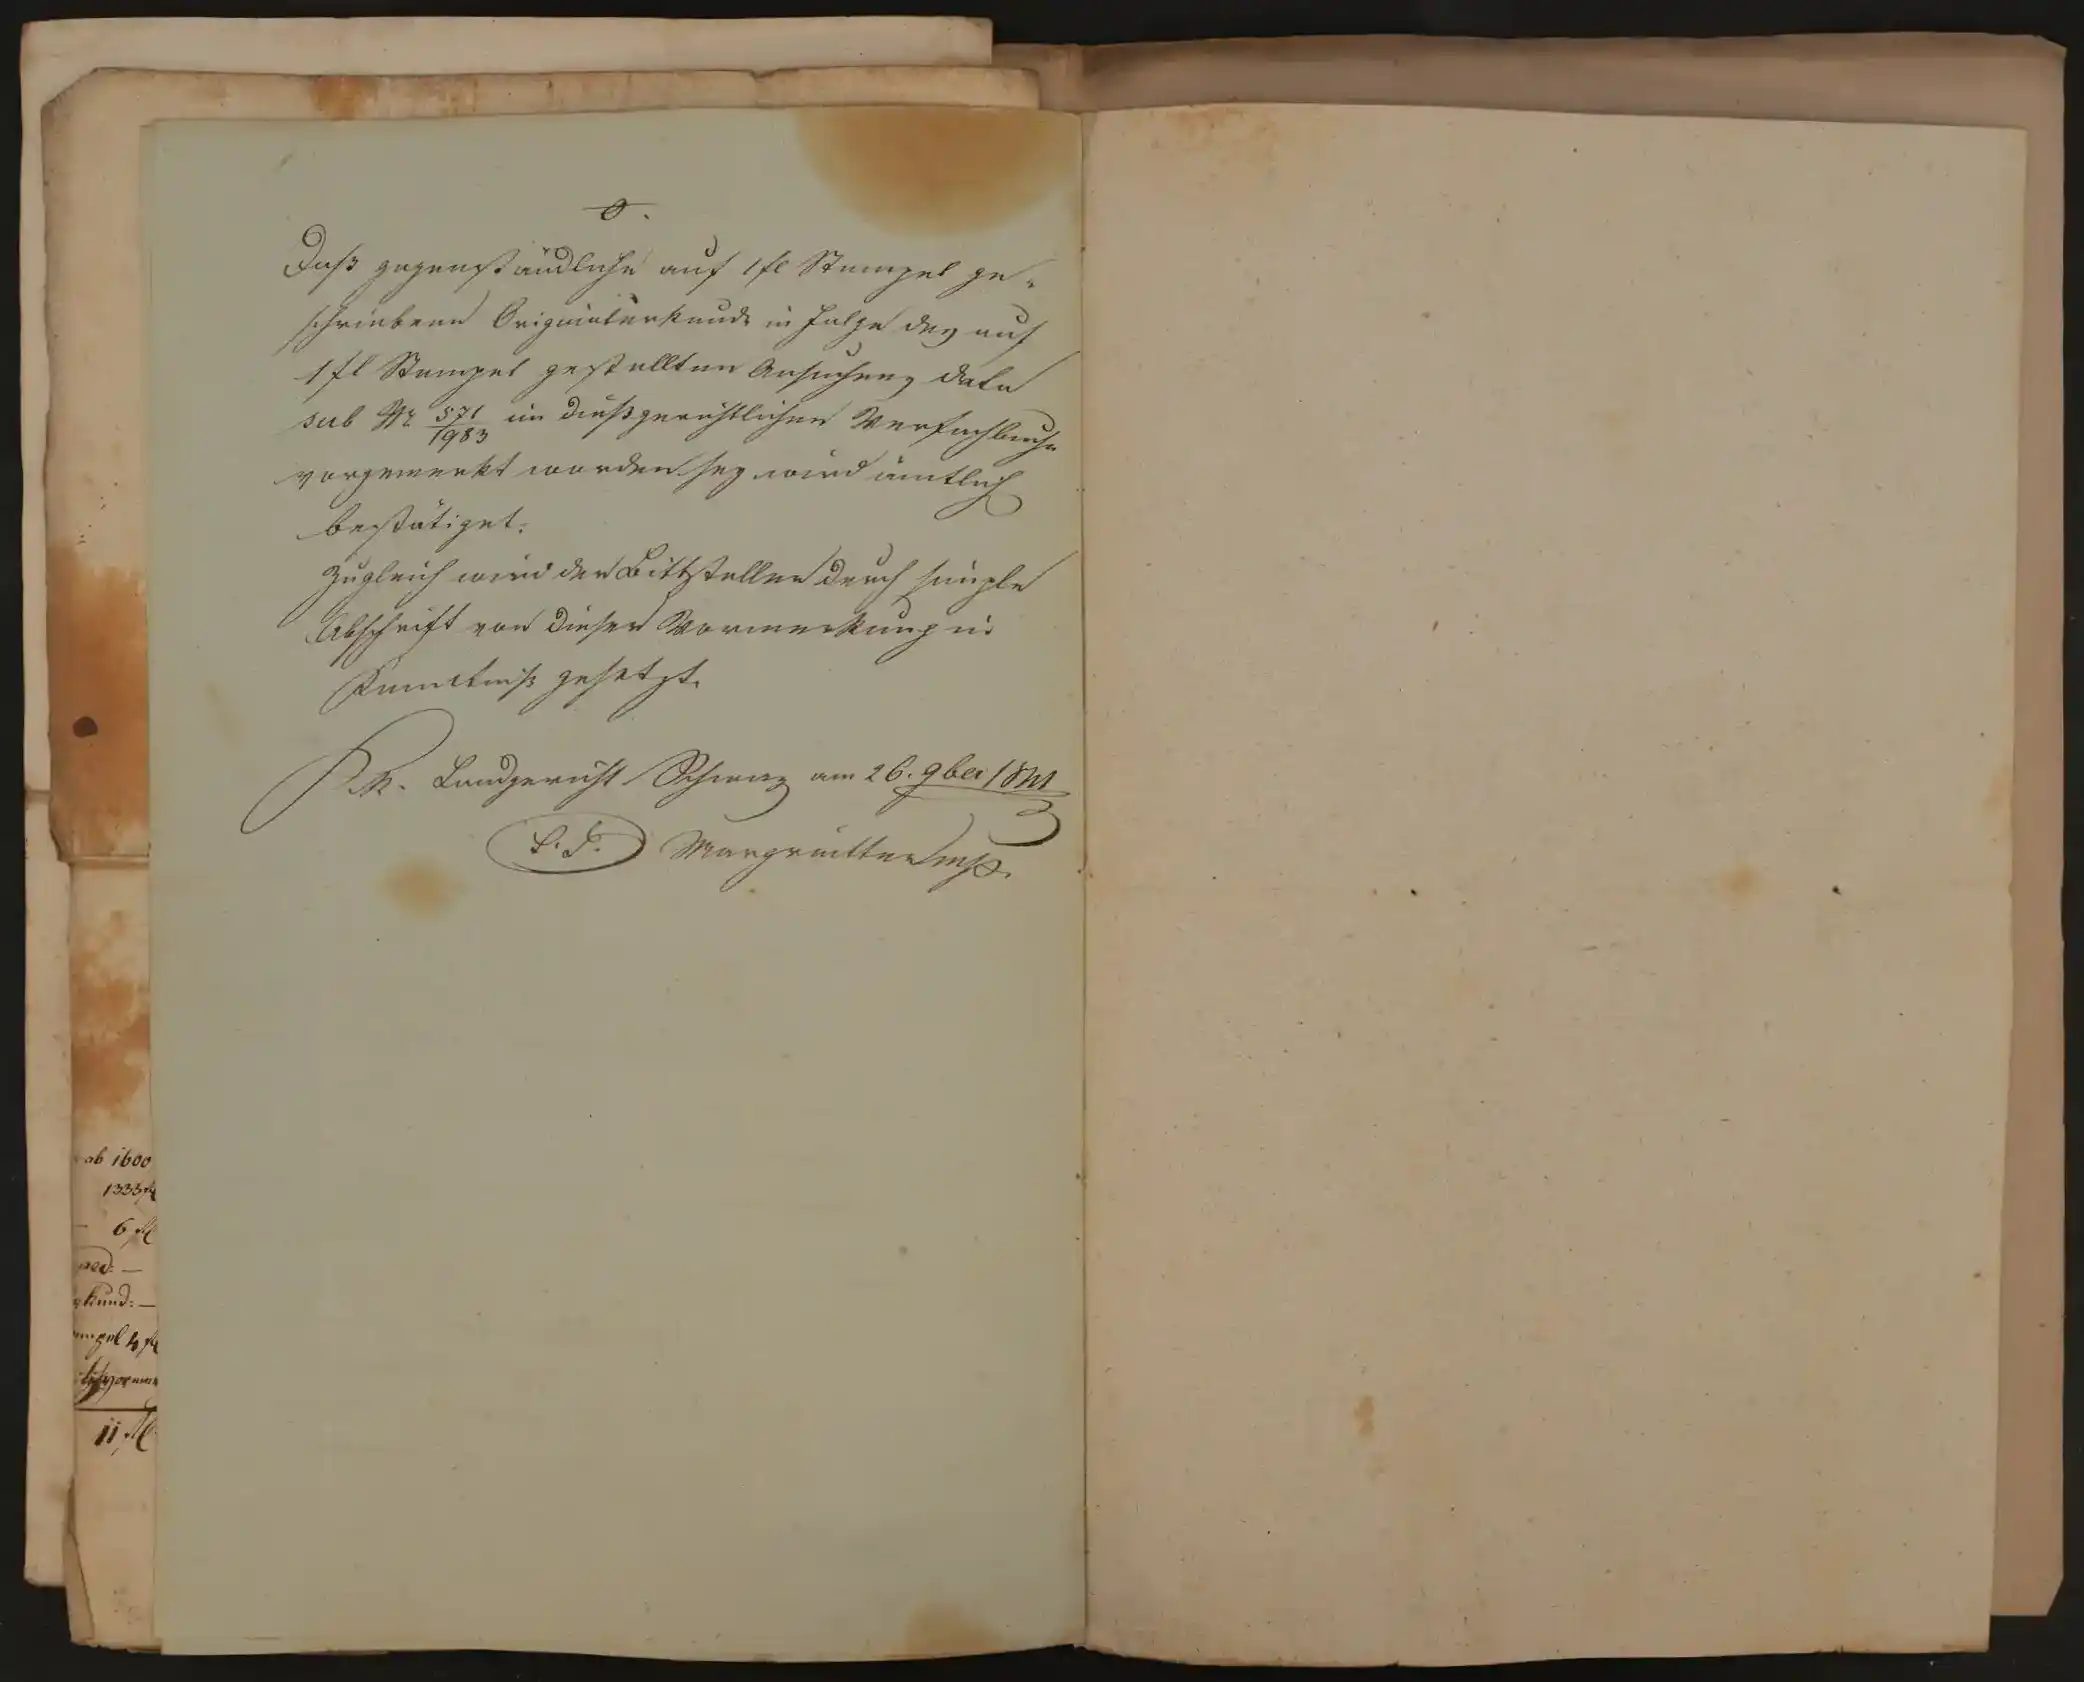 Daß gegenständliche auf 1 fl Stempel ge-
schriebene Originalurkunde in Folge des auf
1 fl Stempel gestellten Ansuchens dato
sub Nr 571/1983 im dießgerichtlichen Verfachbuche
vorgemerkt worden sey wird ämtlich
bestätiget.
Zugleich wird der Bittsteller durch simple
Abschrift von dieser Vormerkung in
Kenntniß gesetzt.
K. K. Landgericht Schwaz am 26. 9ber
L. S. Margreitter mp.
ab 1600
1333 fl
6 fl
kund: —
mpel 4 fl
11 fl